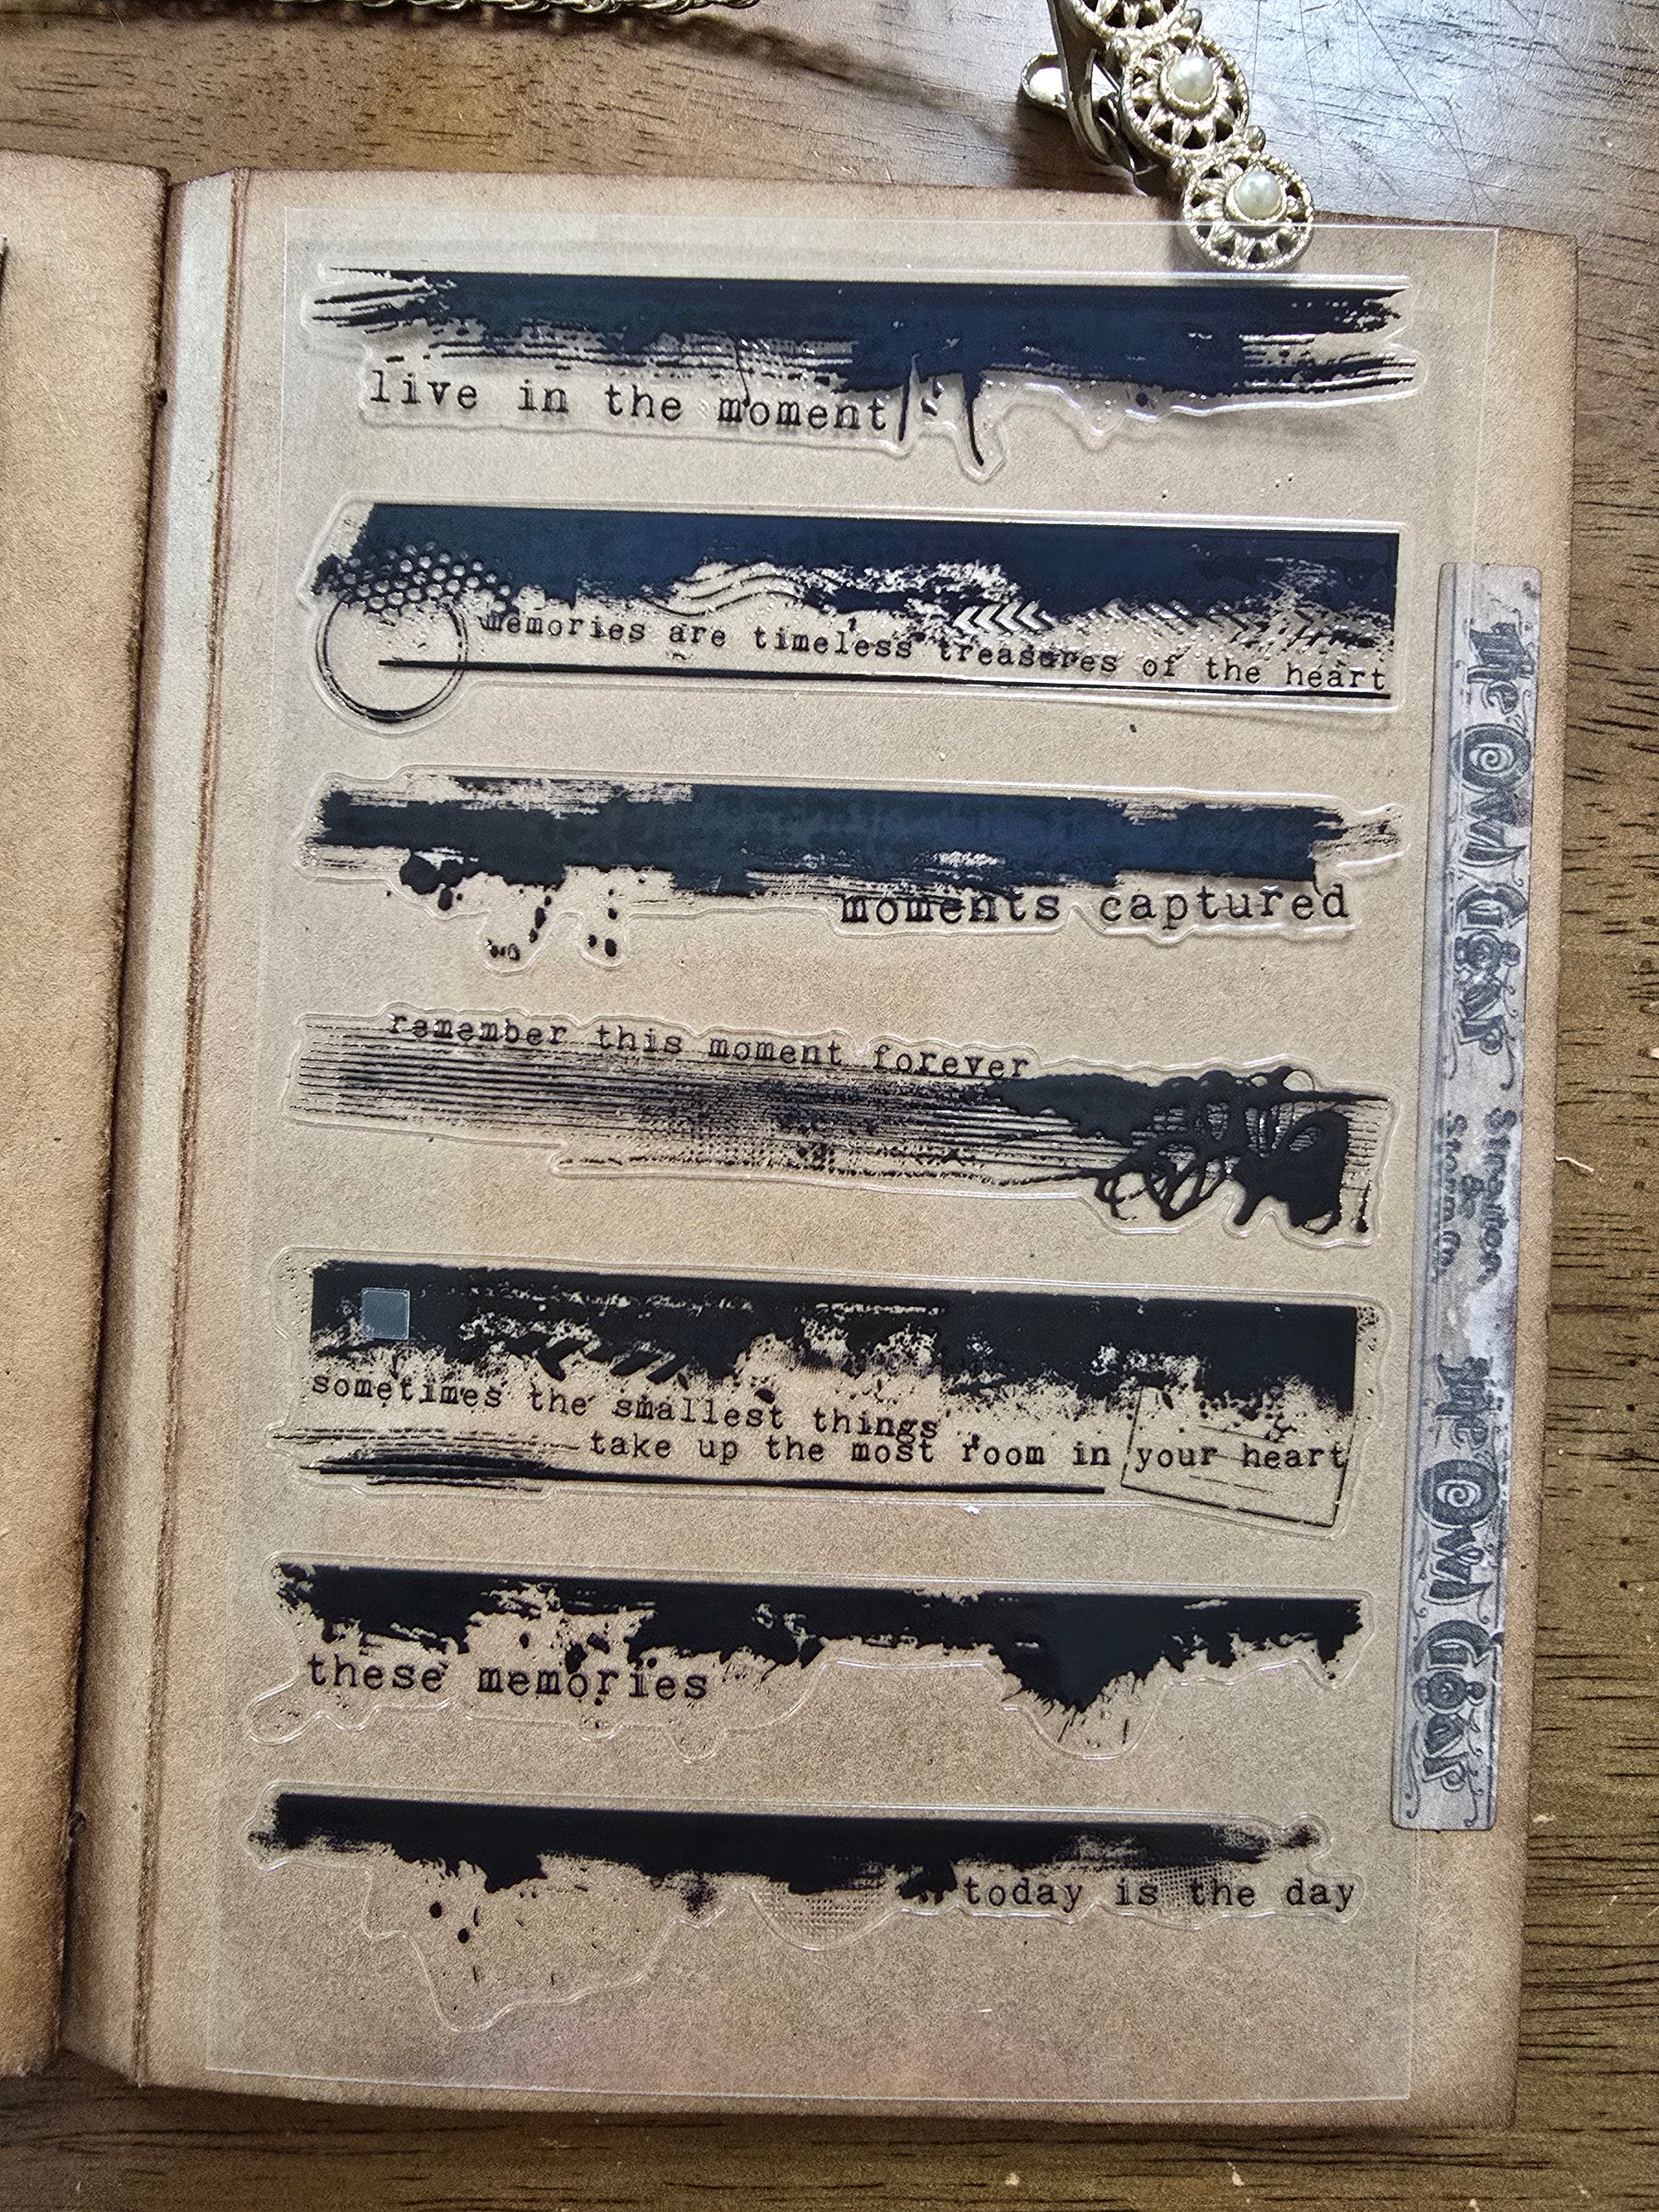 live in the moment
memories are timeless treasures of the heart
moments captured
remember this moment forever
sometimes the smallest things
take up the most room in your heart
these memories
today is the day
The Owl Gear
Stranton
&
Storman
The Owl Gear